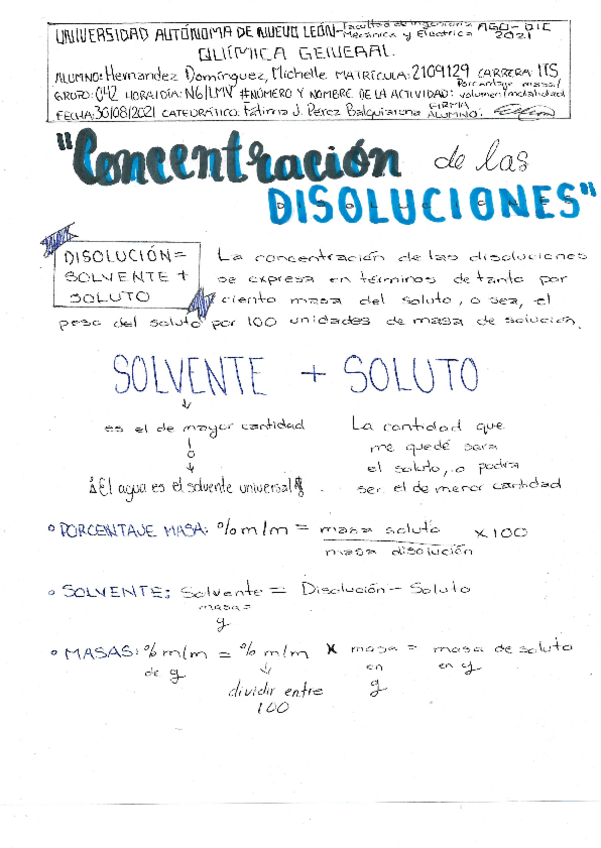 UNIVERSIDAD AUTÓNOMA DE NUEVO LEÓN - Facultad de Ingeniería Mecánica y Eléctrica AGO-DIC 2021
QUÍMICA GENERAL.
ALUMNO: Hernandez Domínguez, Michelle MATRÍCULA: 2109129 CARRERA: ITS
GRUPO: 042 HORA/DÍA: N6/LMV #NÚMERO Y NOMBRE DE LA ACTIVIDAD: Porcentaje masa/volumen/molalidad
FECHA: 30/08/2021 CATEDRÁTICO: Fátima J. Pérez FIRMA ALUMNO:
"Concentración de las
DISOLUCIONES"
DISOLUCIÓN =
SOLVENTE +
SOLUTO
La concentración de las disoluciones
se expresa en términos de tanto por
ciento masa del soluto, o sea, el
peso del soluto por 100 unidades de masa de solución.
SOLVENTE + SOLUTO
es el de mayor cantidad
o
¡El agua es el solvente universal!
La cantidad que
me quedé sara
el soluto, o podría
ser el de menor cantidad
° PORCENTAJE MASA: % m/m = masa soluto x 100
masa disolución
° SOLVENTE: Solvente = Disolución - Soluto
masa =
g
° MASAS: % m/m = % m/m x masa = masa de soluto
de g
en
en g
g
dividir entre
100